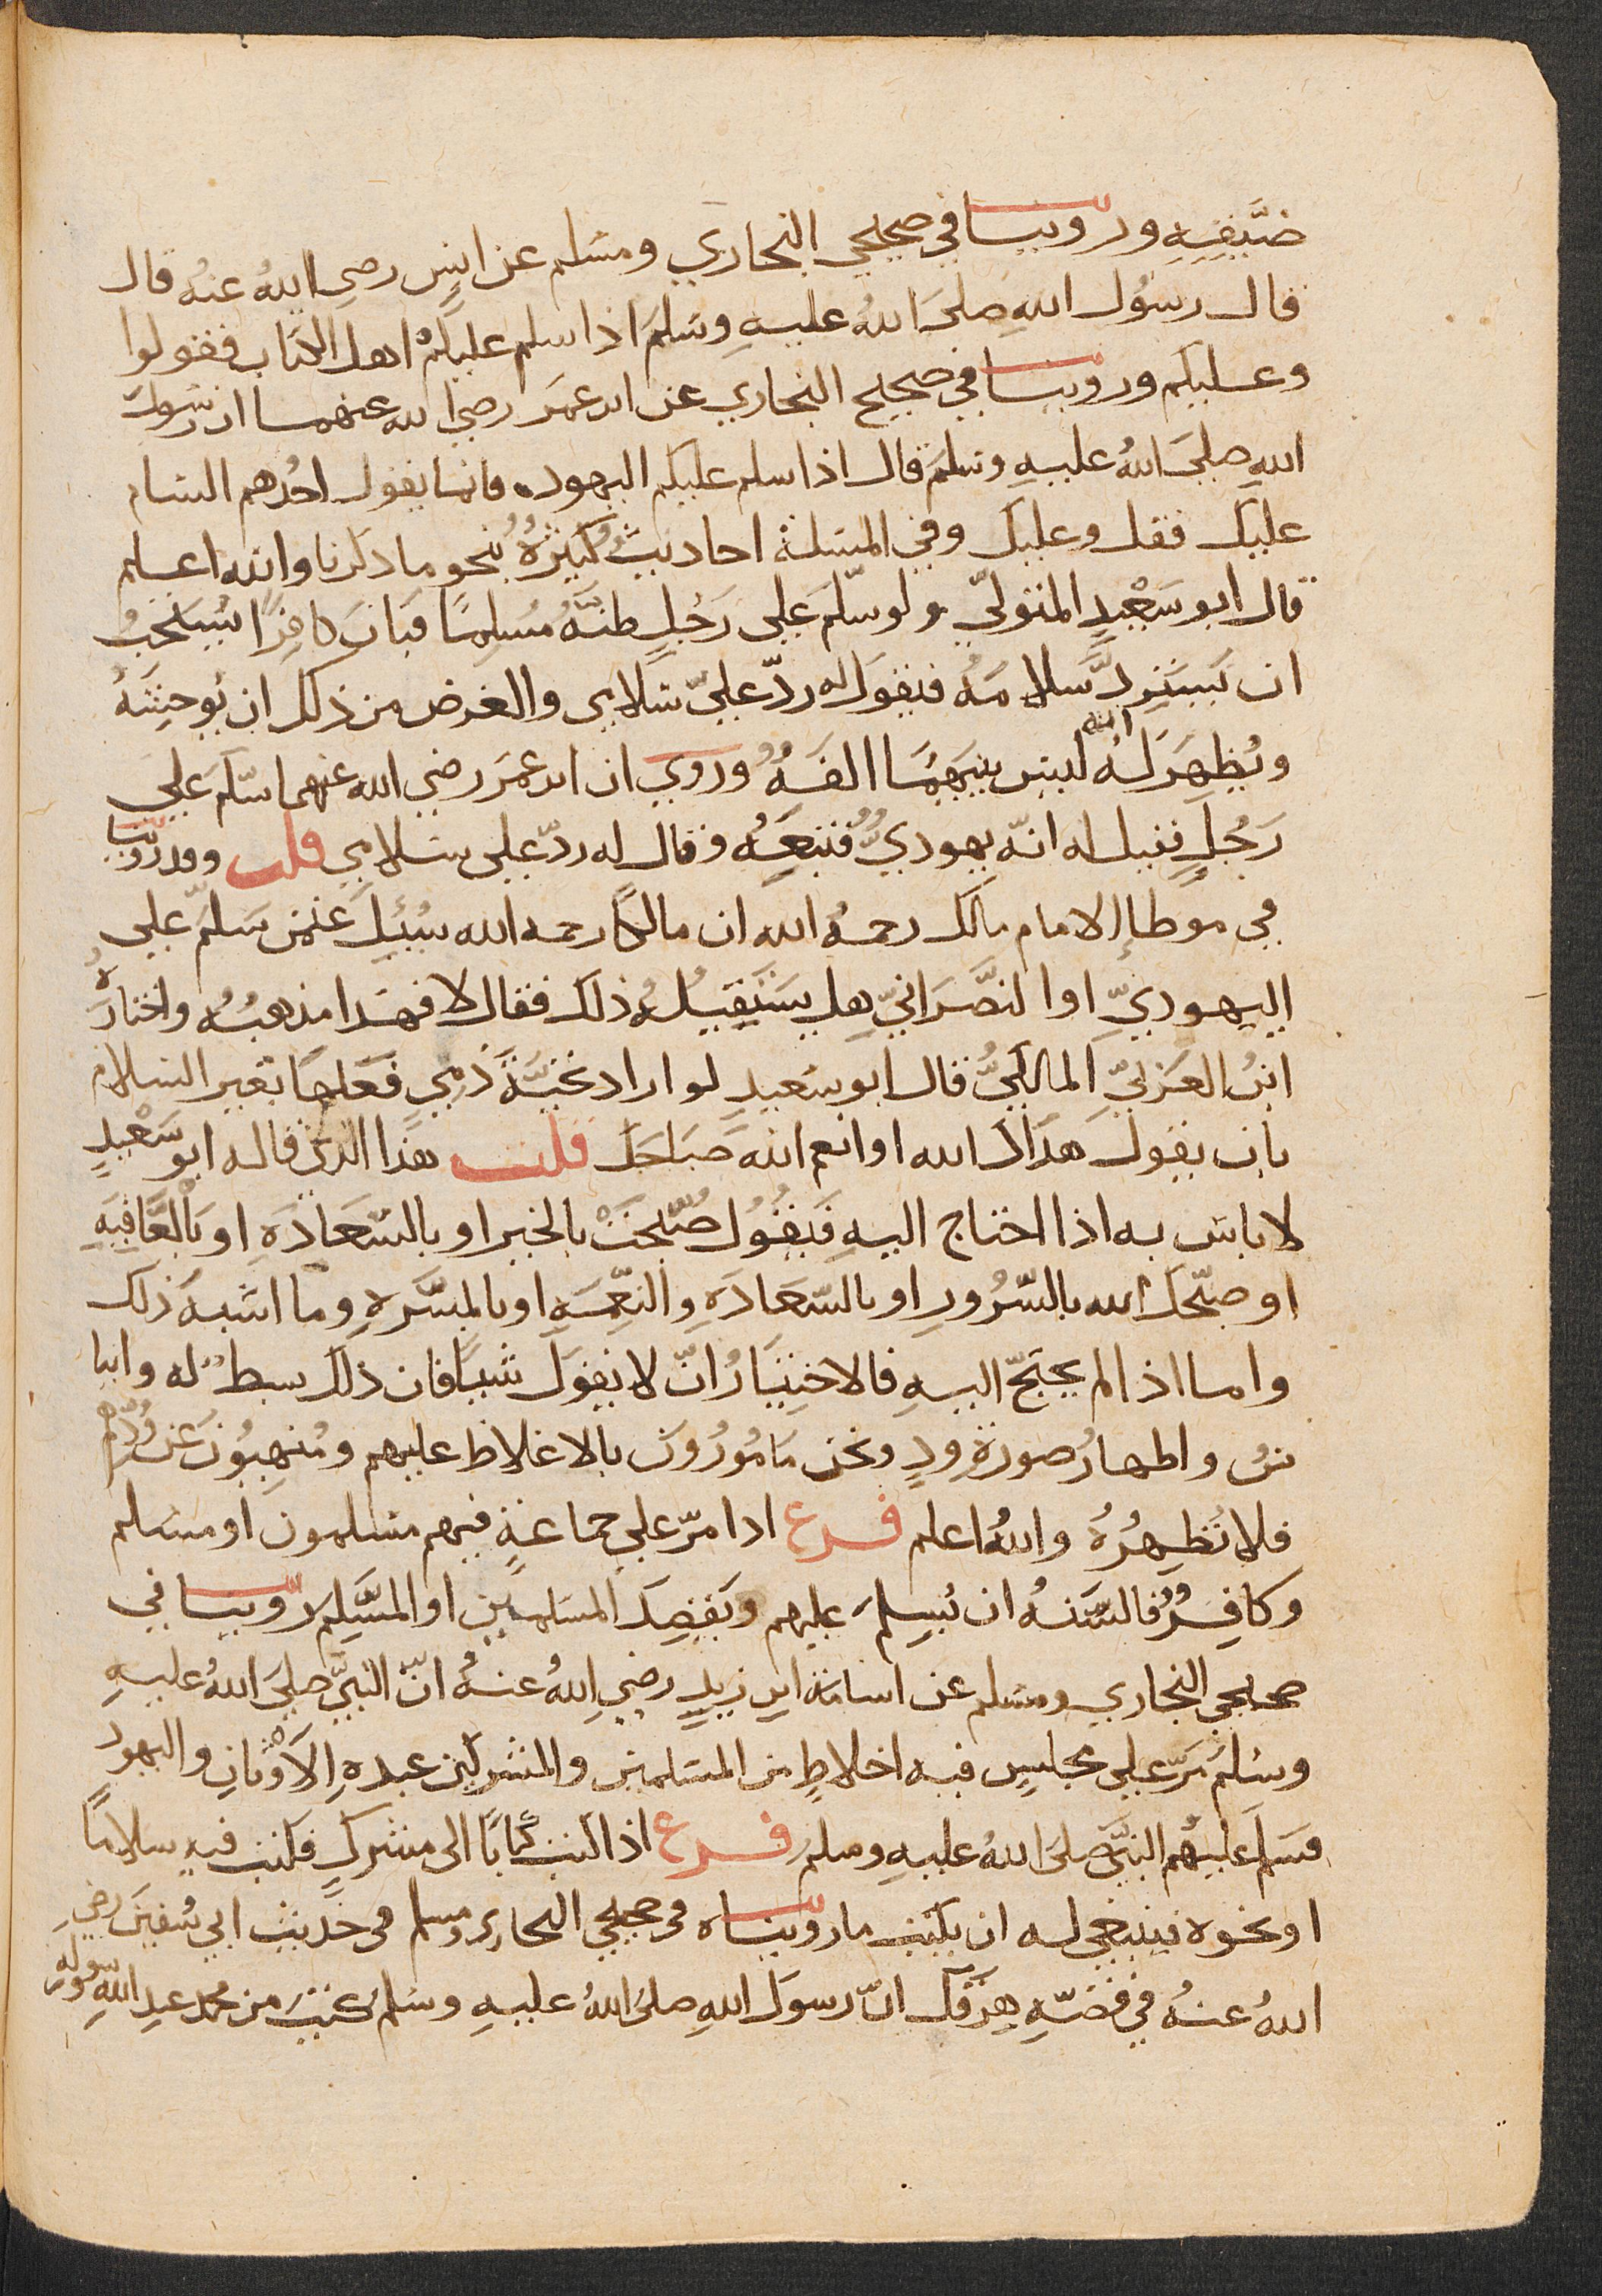 ضيّقه وروينا في صحيحي البخاري ومسلم عن انس رضي الله عنه قال
قال رسول الله صلى الله عليه وسلم اذا سلم عليكم اهل الكتاب فقولوا
وعليكم وروينا في صحيح البخاري عن ابن عمر رضي الله عنهما ان رسول
الله صلى الله عليه وسلم قال اذا سلم عليكم اليهود فانما يقول احدهم السام
عليك فقل وعليك وفي المسئلة احاديث كثيرة بنحو ما ذكرنا والله اعلم
قال ابو سعيد المتولي ولو سلّم على رجل ظنّه مسلما فبان كافرا يستحب
ان يسترد سلامه فيقول له ردّ عليّ سلامي والغرض من ذلك ان يوحشه
ويظهر له انه ليس بينهما الفة وروي ان ابن عمر رضي الله عنهما سلّم على
رجل فقيل له انّه يهودي فتبعه وقال له ردّ علي سلامي قلت وقد روينا
في موطإ الامام مالك رحمه الله ان مالكا رحمه الله سئل عمن سلّم على
اليهوديّ او النصرانيّ هل يستقيله ذلك فقال لا فهذا مذهبه واختاره
ابن العربيّ المالكيّ قال ابو سعيد لو اراد تحيّة ذمي فعلها بغير السلام
بان يقول هداك الله او انعم الله صباحك قلت هذا الذي قاله ابو سعيد
لا باس به اذا احتاج اليه فيقول صبّحت بالخير او بالسعادة او بالعافيه
او صبّحك الله بالسّرور او بالسّعادة والنعمة او بالمسّرة وما اشبه ذلك
واما اذا لم يحتجّ اليه فالاختيار انّ لا يقول شيا فان ذلك بسط له وايـا
نس واظهار صورة ود ونحن مامورون بالاغلاظ عليهم ومنهيون عن ودّهم
فلا نظهره والله اعلم فرع اذا مرّ على جماعة فيهم مسلمون او مسلم
وكافر فالسّنه ان يسلم عليهم ويقصد المسلمين او المسلم روينا في
صحيحي البخاري ومسلم عن اسامة ابن زيد رضي الله عنه انّ النبيّ صلى الله عليه
وسلم مرّ على مجلس فيه اخلاط من المسلمين والمشركين عبدة الاوثان واليهود
فسلم عليهم النبيّ صلى الله عليه وسلم فرع اذا كتب كتابا الى مشرك فكتب فيه سلاما
او نحوه فينبغي له ان يكتب ما رويناه في صحيحي البخاري ومسلم في حديث ابي سفين رضي
الله عنه في قصّه هرقل انّ رسول الله صلى الله عليه وسلم كتب من محمد عبد الله ورسوله